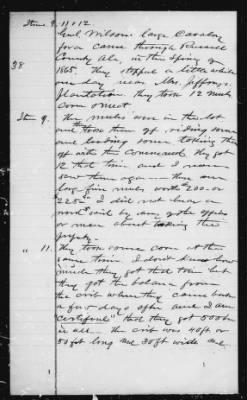 Items 9, 11 & 12
Genl Wilsons large Cavalry
force came through Russell
County Ala, in the Spring of
1865. They stopped a little while
one day near Mrs. Jeffersons
38
plantation. They took 12 Mules
Corn & Meat.
Item 9.
The mules were in the lot
and took them off riding some
and leading some taking them
off with the Command. They got
12 that time and I never
saw them again— They were
large fine mules worth 200. or
"225" I did not hear a
word said by any of the officers
or men about taking the
property.
" 11.
They took some corn at the
same time I dont know how
much they got that time but
they got the balance from
the crib when they came back
a few days after and I am
certified" that they got 500 bu
in all— the crib was 40 ft or
50 ft long and 30 ft wide and